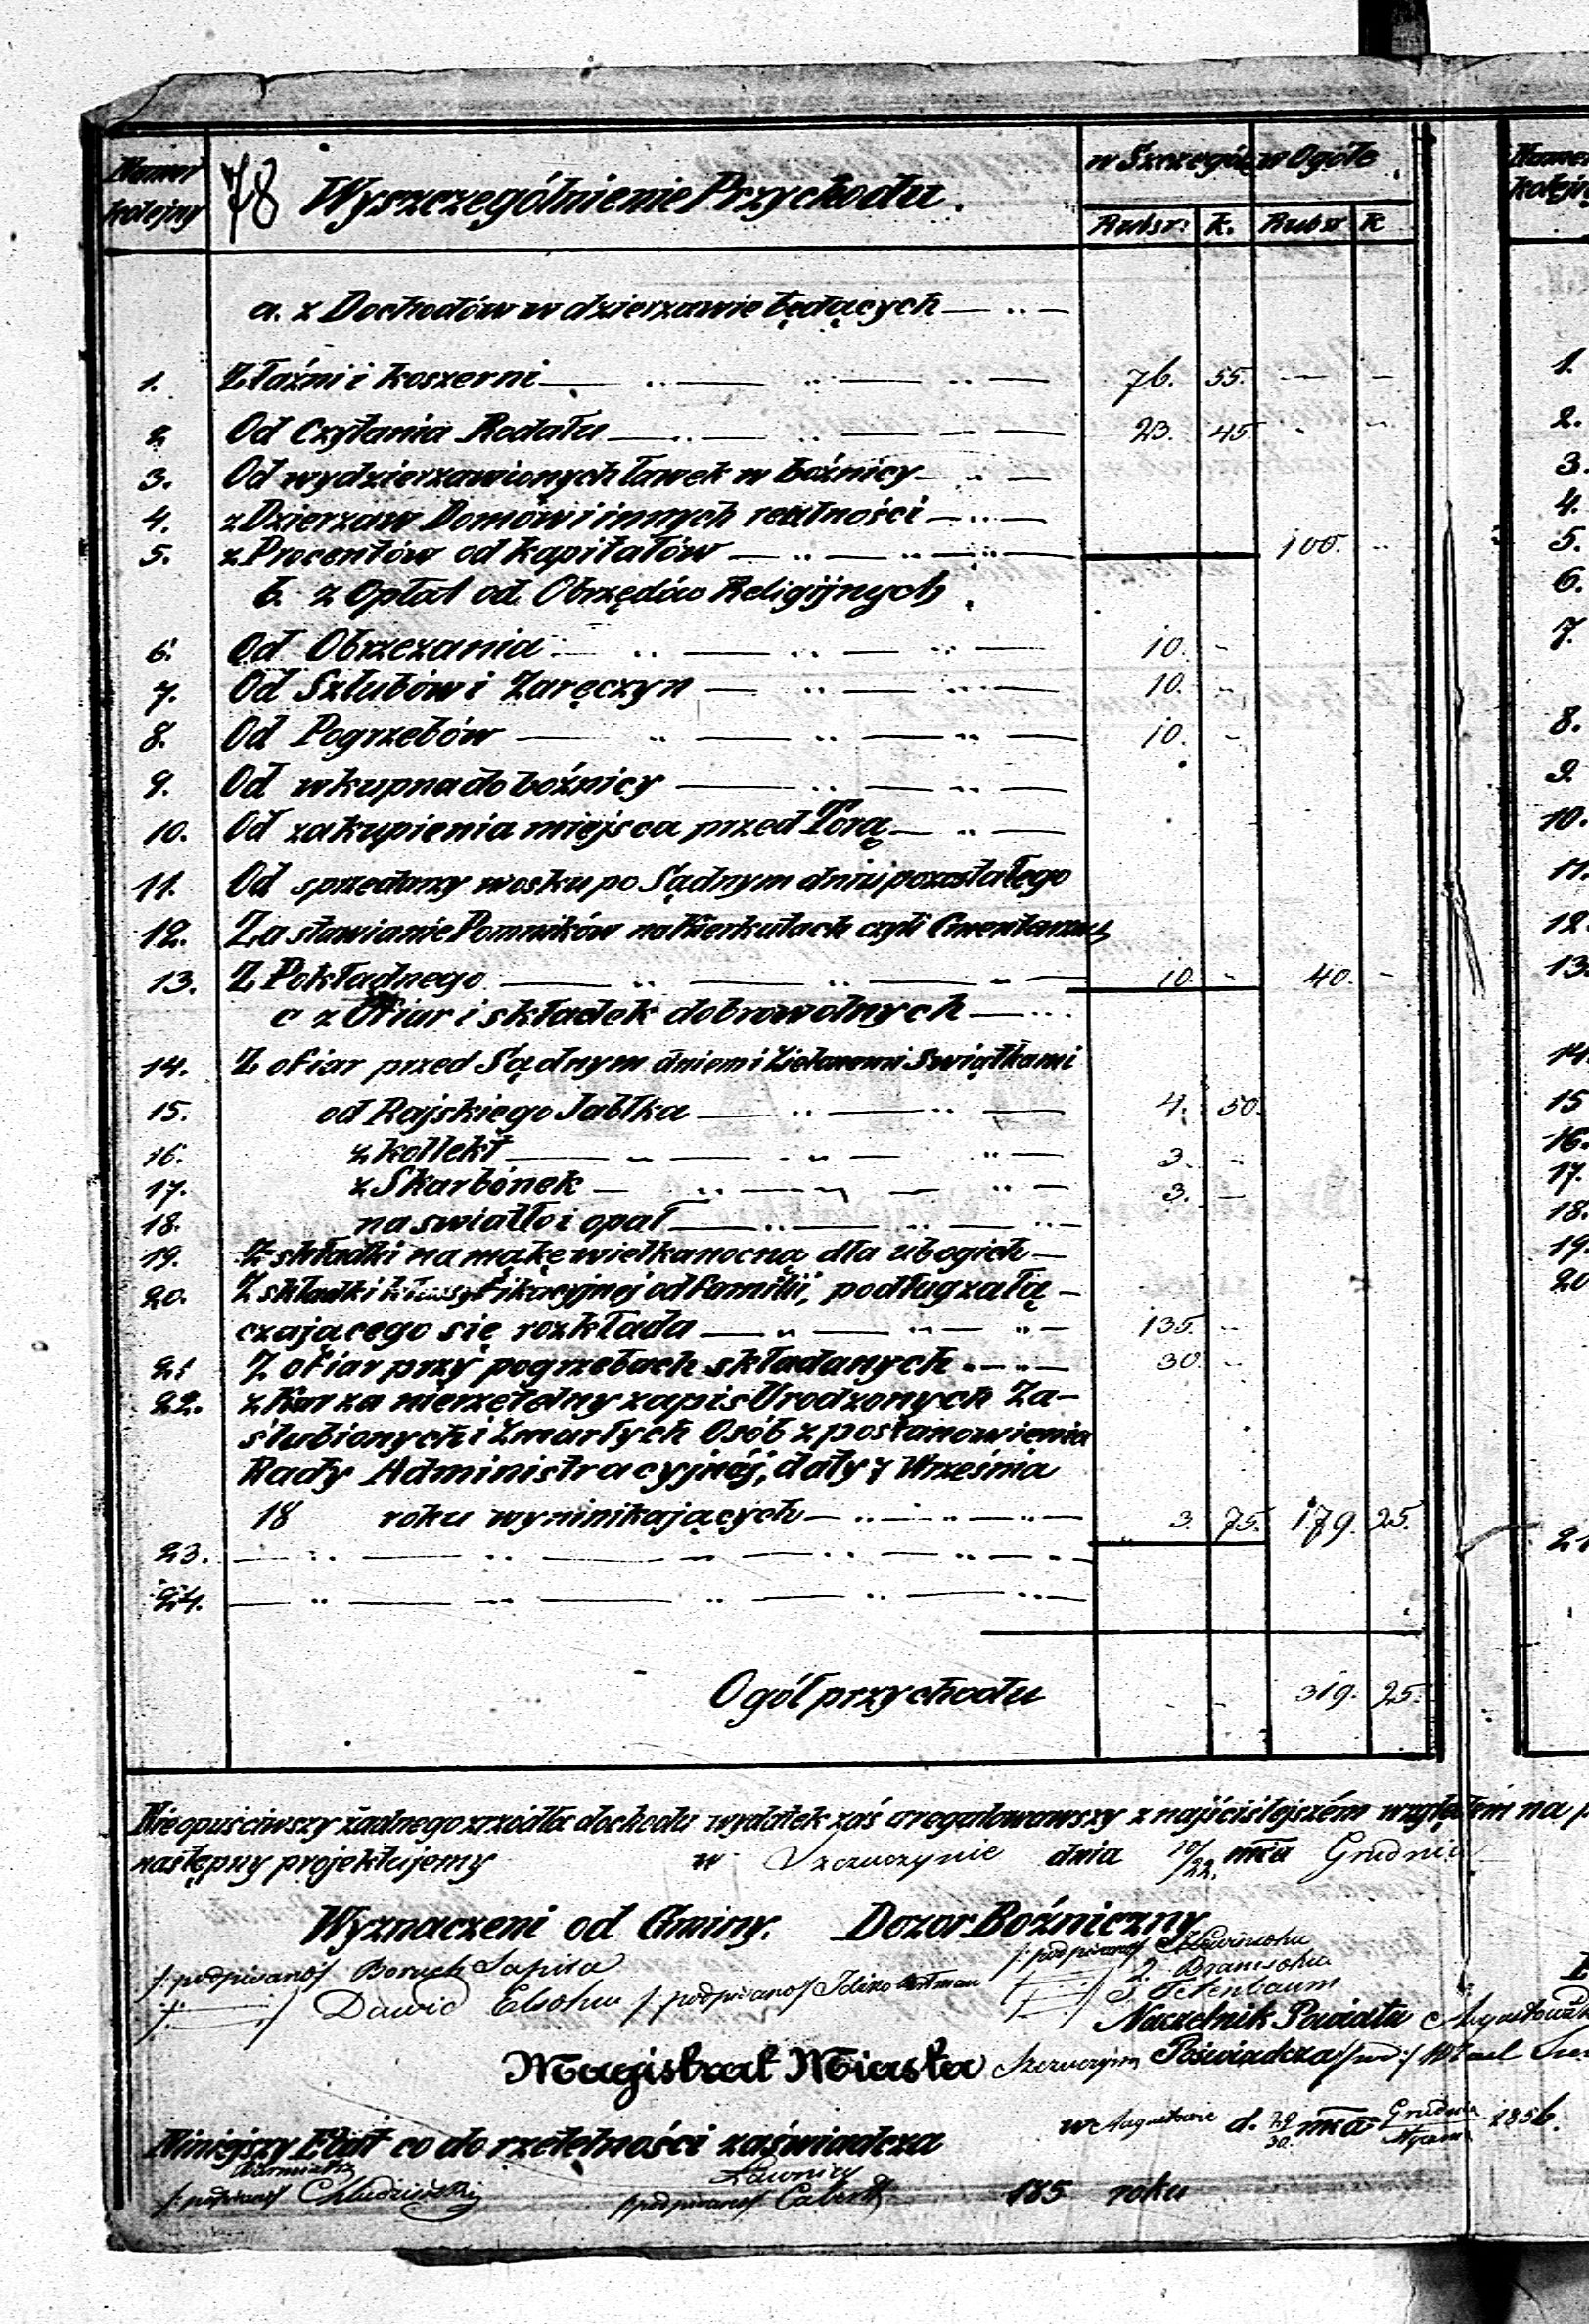 Numer kolejny 78 Wyszczególnienie Przychodu. w Szczególe w Ogóle
Rubsr: k. Rubsr k
a. z Dochodów w dzierzawie będących — .. —
1. Z łaźni i koszerni 76. 55. — —
2. Od Czytania Rodału 23. 45.
3. Od wydzierzawionych ławek w bóźnicy
4. z Dzierzaw Domów i innych realności
5. z Procentów od kapitałów 100. ..
b. z Opłat od Obrzędów Religijnych
6. Od Obrzezania 10. -
7. Od Szlubów i Zaręczyn 10. ..
8. Od Pogrzebów 10. -
9. Od wkupna do bóźnicy
10. Od zakupienia miejsca przed Torą
11. Od sprzedarzy wosku po Sądnym dniu pozostałego
12. Za stawianie Pomników na Kierkutach czyli Cmentarzu
13. Z Pokładnego 10. - 40. -
c z Ofiar i składek dobrowolnych
14. Z ofiar przed Sądnym dniem i Zielonemi Swiątkami
15. od Rajskiego Jabłka 4. 50.
16. z kollekt 3. -
17. z Skarbónek 3. —
18. na swiatło i opał
19. Z składki na mąkę wielkanocną dla ubogich
20. Z składki klassyfikacyjnej od familii, podług załą-
czającego się rozkłada 135. ..
21 Z ofiar przy pogrzebach składanych 30 ..
22. z Kar za nierzetelny zapis Urodzonych Za-
ślubionych i Zmarłych Osób z postanowienia
Rady Administracyjnéj, daty 7 Września
18 roku wyninikających 3. 75. 179. 25.
23.
24.
Ogół przychodu - - 319. 25.
Nieopuściwszy żadnego zrzódła dochodu wydatek zaś uregulowawszy z najściślejszém względem na
następny projektujemy w Szczuczynie dnia 10/22. mca Grudnia
Wyznaczeni od Gminy. Dozor Bóźniczny
/: podpisano/ Boruch Sapira /: podpisano/
Dawid /: podpisano/
J. Tetenbaum
Naczelnik Powiatu
Magistrat Miasta Szczuczyna Poświadcza
w Augustowie d. mca Grudnia 1856.
Niniejszy Etat co do rzetelności zaświadcza
Burmistrz Ławnicy
/: podpisano/ /podpisano/
185 roku
Numer kolejny
1.
2.
3.
4.
5.
6.
7.
8.
9.
10.
11.
12
13.
14
15
16.
17.
18.
19.
20
21